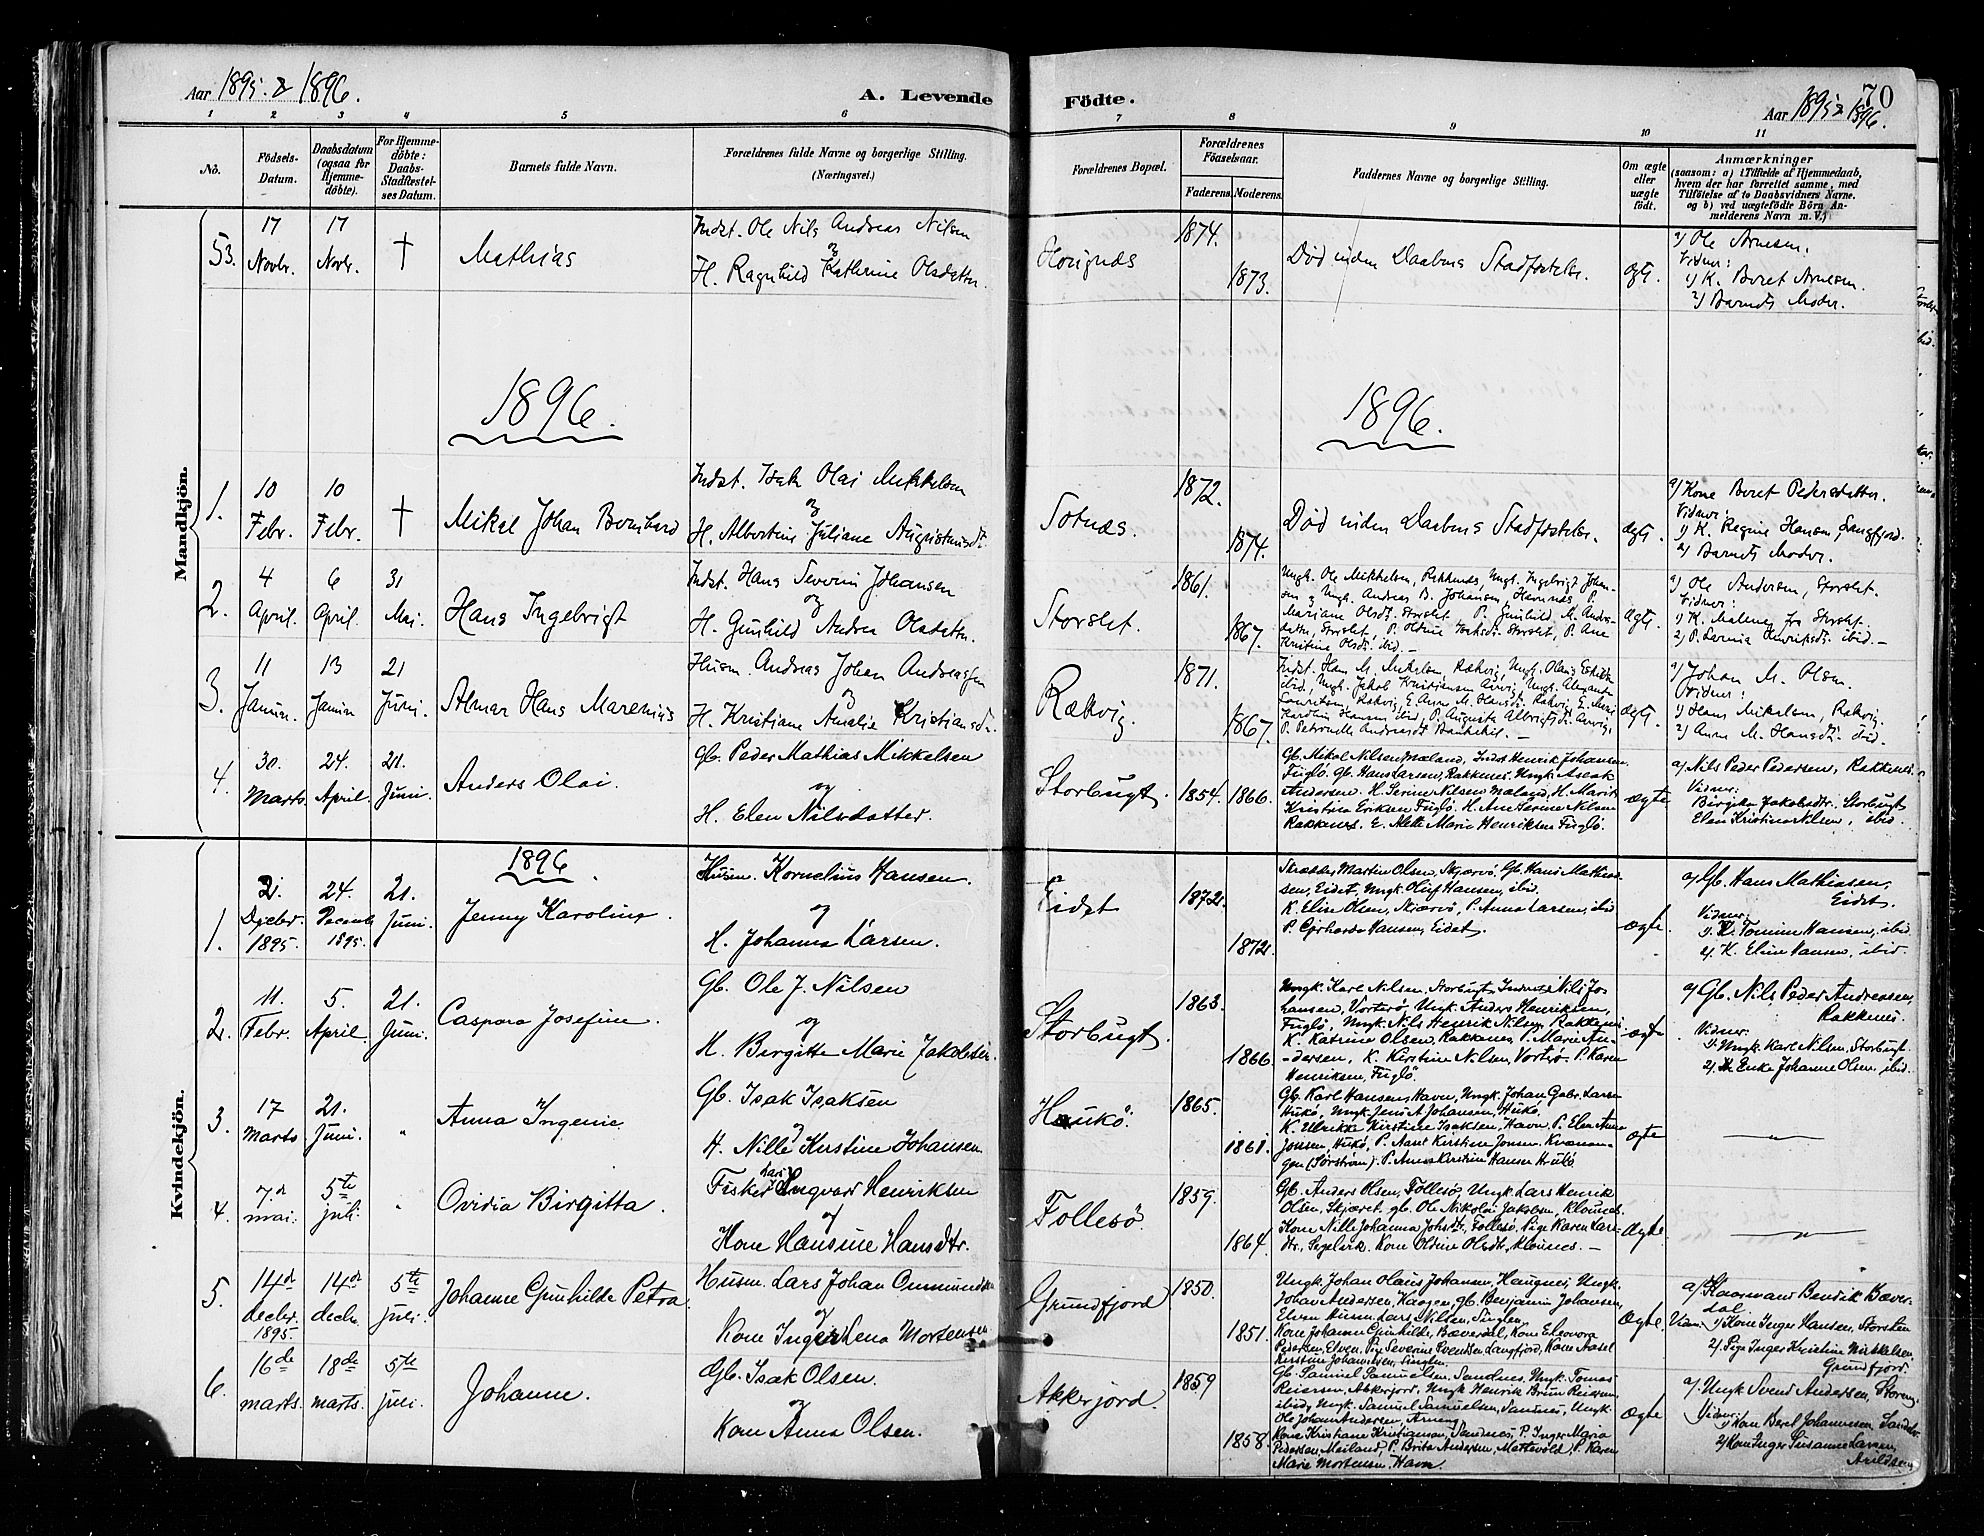 Aar 1895 & 1896.
A. Levende
Födte.
70
Aar 1895 & 1896.
1 2 3 4 5 6 7 8 9 10 11
No.
Födsels-
Datum.
Daabsdatum
(ogsaa for
Hjemme-
döbte).
For Hjemme-
döbte:
Daabs-
Stadfæstel-
ses Datum.
Barnets fulde Navn.
Forældrenes fulde Navne og borgerlige Stilling.
(Næringsvei.)
Forældrenes Bopæl.
Forældrenes
Föaselsaar.
Faderens.
Moderens.
Faddernes Navne og borgerlige Stilling.
Om ægte
eller
uægte
födt.
Anmærkninger
(saasom: a) i Tilfælde af Hjemmedaab,
hvem der har forrettet samme, med
Tilföielse af to Daabsvidners Navne.
og b) ved uægtefödte Börn An-
melderens Navn m. V.)
Mandkjön.
53.
17
Novbr.
17
Novbr.
†
Mathias
Indst. Ole Nils Andreas Nilsen
og
H. Ragnhild Katherine Olsdatter
1874.
1873.
Död inden Daabens Stadfæstelse.
ægt.
a) Ole Arnesen.
Vidner:
1) K. Beret Arnesen.
2) Barnets Moder.
1896.
1896.
1.
10
Febr.
10
Febr.
†
Mikal Johan Bernhard
Indst. Isak Olai Mikkelsen
og
H. Albertine Juliane Augustinusdt.
Sotnæs.
1872.
1874.
Död inden Daabens Stadfæstelse.
ægt.
a) Kone Beret Pedersdatter.
Vidner:
1) K. Regine Hansen, Langfjord.
2) Barnets Moder.
2.
4
April.
6
April.
31
Mai.
Hans Ingebrigt
Indst. Hans Severin Johansen
og
H. Gunhild Andrea Olsdatter.
Storslet.
1861.
1867.
Ungk. Ole Mikkelsen, Rakkenæs, Ungk. Ingebrigt Johan-
sen & Ungk. Andreas B. Johansen, Havnnæs, P.
Mariane Olsdt. Storslet P. Gunhild M. Anders-
datter, Storslet, P. Oldine Isaksdt. Storslet, P. Ane
Kristine Olsdt. ibid. —
ægt.
a) Ole Andersen, Storslet.
Vidner:
1) K. Malene fra Storslet.
2) P. Lavina Henriksdt. ibid. —
3.
11
Januar.
13
Januar
21
Juni.
Almar Hans Marenius
Husm. Andreas Johan Andreassen
og
H. Kristiane Amalie Kristiansdt.
Rækvig
1871.
1867.
ægt.
a) Johan M. Olsen.
Vidner:
1) Hans Mikelsen, Rækvig.
2) Anne M. Hansdt. ibid.
4.
30.
Marts
24.
April.
21.
Juni.
Anders Olai
Gb. Peder Mathias Mikkelsen
og
H. Elen Nilsdatter.
Storbugt.
1854.
1866.
Gb. Mikal Nilsen, Mæland, Indst Henrik Johansen
Fuglö. Gb. Hans Larsen, Rakkenes. Ungk. Aslak
Andersen. H. Serine Nilsen Mæland. H. Marit
Kristina Eriksen Fuglö. H. Ane Serine Nilsen
Rakkenes. E. Alette Marie Henriksen Fuglö.
ægte
a) Nils Peder Pedersen, Rakkenes.
Vidner:
Birgitha Jakobsdtr. Storbugt
Elen Kristina Nilsen, ibid.
Kvindekjön.
1896
1.
21.
Decbr.
1895.
24.
Decemb.
1895.
21.
Juni.
Jenny Karoline.
Husm. Kornelius Hansen.
og
H. Johanna Larsen.
Eidet
1872.
1872.
Skrædder Martin Olsen, Skjervö. Gb. Hans Mathias-
sen, Eidet, Ungk. Oluf Hansen, ibid.
K. Elise Olsen, Skjervö, P. Anna Larsen, ibid
P. Gjerharda Hansen, Eidet.
ægte.
a) Gb. Hans Mathiasen,
Eidet.
Vidner:
1. K. Tomine Hansen, ibid.
2. K. Eline Hansen, ibid.
2.
11.
Febr.
5.
April.
21.
Juni.
Caspara Josefine.
Gb. Ole J. Nilsen
og
H. Birgitte Marie Jakobsen.
Storbugt.
1863.
1866.
Ungk. Karl Nilsen, Storbugt Indst Nils Jo-
hansen, Vorterö. Ungk. Anders Henriksen,
Fuglö, Ungk. Nils Henrik Nilsen, Rakkenes
K. Katrine Olsen, Rakkenes P. Marie An-
dersen, K. Kirstine Nilsen, Vorterö. P. Karen
Henriksen, Fuglö.
ægte
a) Gb. Nils Peder Andreasen,
Rakkenes.
Vidner:
1. Ungk. Karl Nilsen, Storbugt.
2. K. Erika Johanne Olsen ibid.
3.
17
Marts
21.
Juni.
"
Anna Ingenie
Gb. Isak Isaksen
og
H. Nille Kirstine Johansen
Haukö
1865.
1861.
Gb. Karl Hansen, Havn, Ungk. Johan Gabr. Larsen
Hukö, Ungk. Jens A Johansen, Hukö,
K. Ulrikke Kirstine Isaksen, Havn, P. Elen Anna
Jonsen, Hukö, P. Aast Kirstine Jonsen. Kvænan-
gen (Sörström). P. Anna Kirstine Hansen Hukö
ægte
4.
7d
mai.
5te
juli.
"
Ovidia Birgitta.
Fisker Ingvart Henriksen
og
Kone Hansine Hansdtr.
Follesö.
1859.
1864.
Gb. Anders Olsen, Follesö, Ungk. Lars Henrik
Olsen, Skjæret. gb. Ole Nikolai Jakobsen, Klounes.
Kone Nille Johanna Johsdtr, Follesö, Pige Karen Lars-
dtr., Segelvik. Kone Oldine Olsdtr, Klounes. —
Ægte.
5.
14de
decbr.
1895.
14de
decbr.
5te
juli.
Johanne Gunhilde Petra
Husm. Lars Johan Ommundsen
og
Kone Inger Lena Mortensen
Grundfjord
1850.
1851.
Ungk. Johan Olaus Johansen, Haugnes, Ungk.
Johan Andersen, Haagen, gb. Benjamin Johansen,
Elven, Husm. Lars Nilsen, Singlen,
Kone Johanne Gunhilde, Bæverdal, Kone Eleonora
Pedersen, Elven. Pige Severine Svendsen Langfjord, Kone Aasel
Kirstine Johannesen, Singlen.
Ægte.
a) Kaarmand Bendik Bæver-
dal
Vidner: 1) Kone Inger Hansen, Storsten
2) Pige Inger Kristine Mikkelsen
Grundfjord.
6.
16de
marts.
18de
marts.
5te
juli.
Johanne.
Gb. Isak Olsen.
og
Kone Anna Olsen.
Akkerjord.
1859
1858.
Gb. Samuel Samuelsen, Sandnes. Ungk. Tomas
Reiersen, Akkerjord. Ungk. Henrik Brun Reiersen,
ibid, Ungk. Samuel Samuelsen, Sandnes, Ungk.
Ole Johan Andersen,
Kone Kristiane Kristiansen, Sandnes, P. Inger Maria
Pedersen, Meiland, P. Brita Andersen, Mettevold, P. Karen
Marie Mortensen, Havn.
Ægte
a) Ungk Svend Andersen, Storeng.
Vidner:
1) Kone Beret Johannesen Sandnes
2) Kone Inger Susanne Larsen,